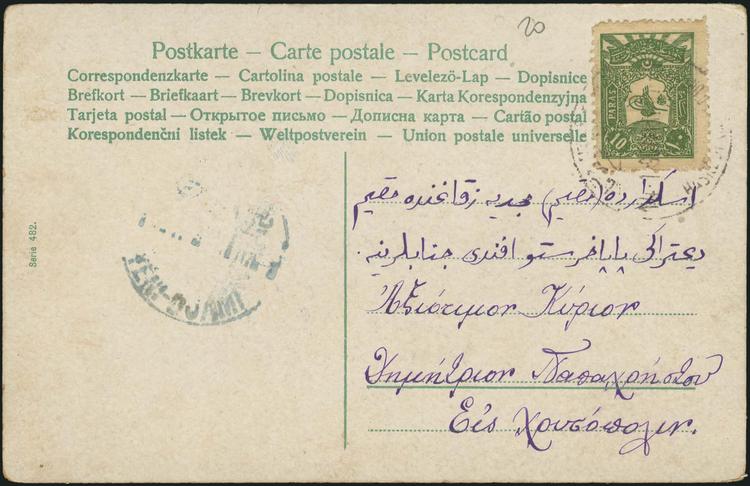 20
Postkarte — Carte postale — Postcard
Correspondenzkarte — Cartolina postale — Levelezö-Lap — Dopisnice
Brefkort — Briefkaart — Brevkort — Dopisnica — Karta Korespondenzyjna
Tarjeta postal — Открытое письмо — Дописна карта — Cartão postal
Korespondenční listek — Weltpostverein — Union postale universelle
PARAS
10
اسكدارده جديد
افندى جنابلرينه
Ἀξιότιμον Κύριον
Δημήτριον Παπαχρήστου
Εἰς Χρυσόπολιν.
YENI-DJAMI
Serie 482.